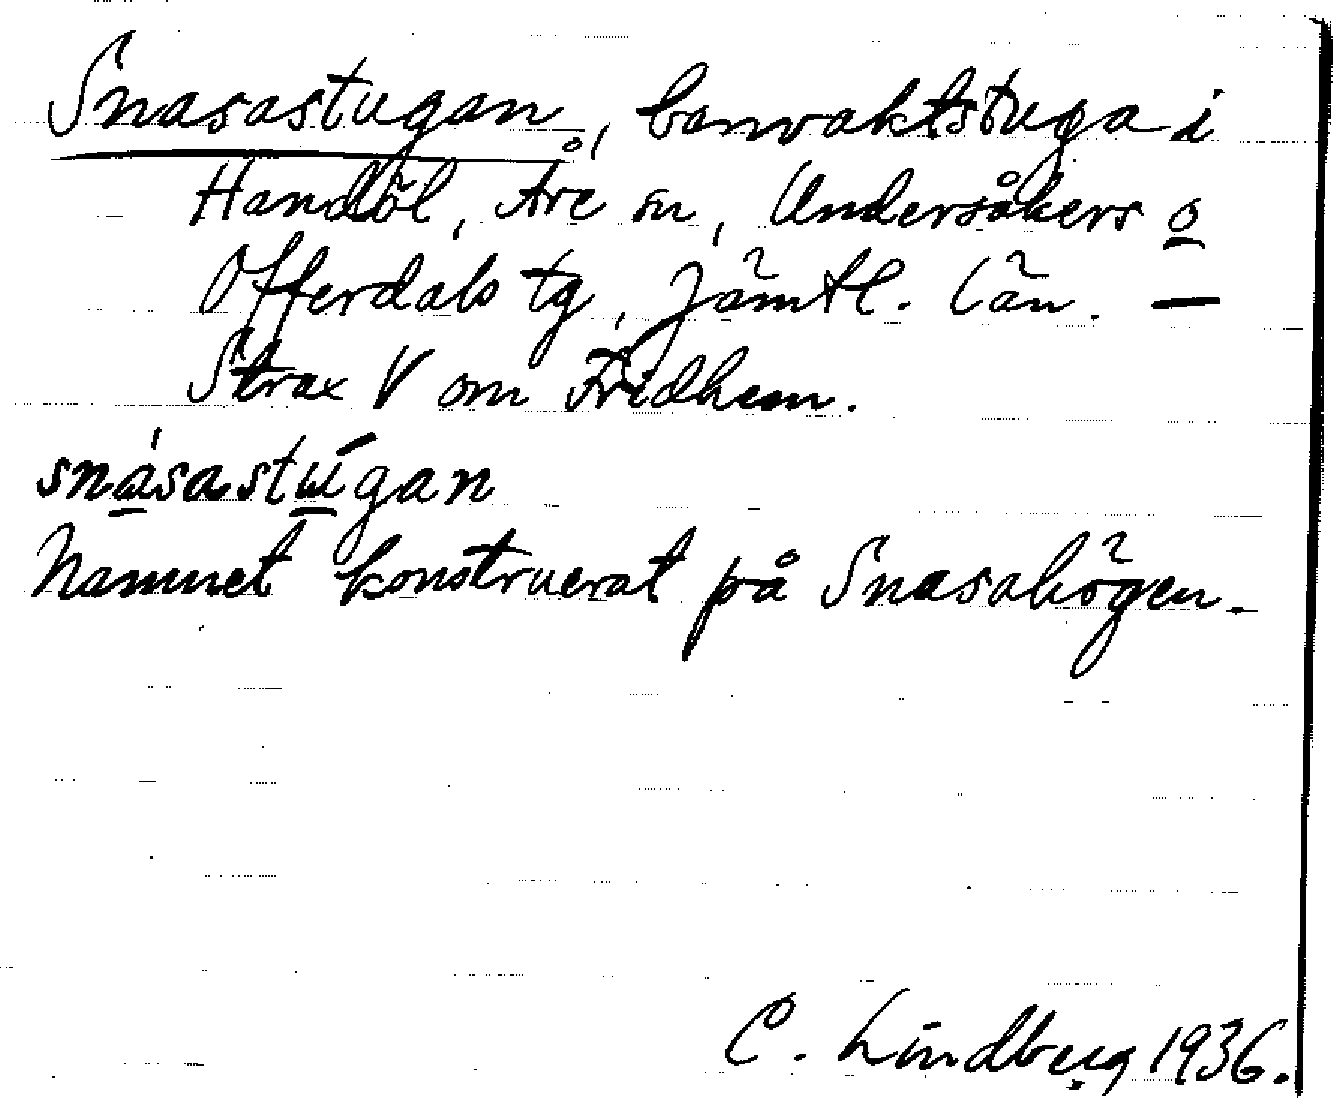 Snasastugan, banvaktstuga i
Handöl, Åre sn, Undersåkers o
Offerdals tg, Jämtl. län. —
Strax V om Fridhem.
snásastúgan
Namnet konstruerat på Snasahögen.
C. Lindberg 1936.